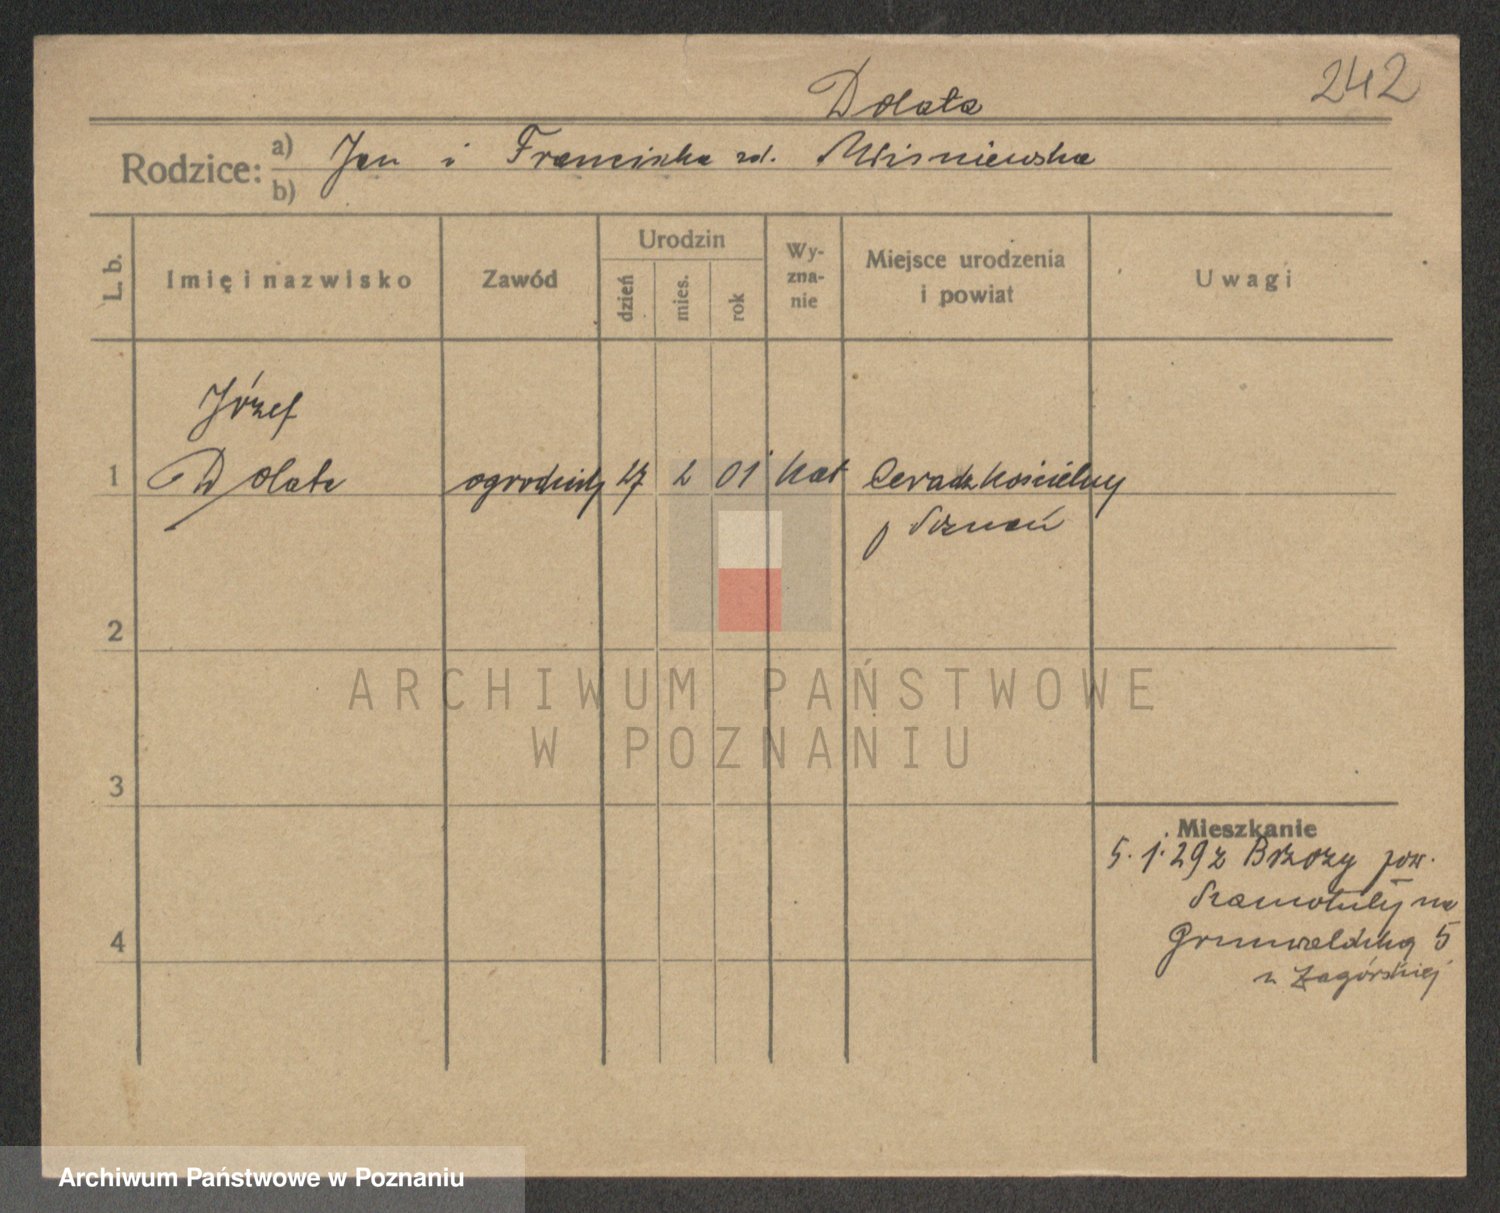 242
Dolata
Rodzice: a) Jan i Franciszka zd. Wiśniewska
b)
L. b.
Imię i nazwisko
Zawód
Urodzin
dzień
mies.
rok
Wy-
zna-
nie
Miejsce urodzenia
i powiat
Uwagi
Józef
1 Dolata ogrodnik 27 2 01 kat Ceradz Kościelny
p Poznań
2
3
4
ARCHIWUM PAŃSTWOWE
W POZNANIU
Mieszkanie
5. 1. 29 z Brzozy pow.
Szamotuły na
Grunwaldzką 5
u Zagórskiej
Archiwum Państwowe w Poznaniu